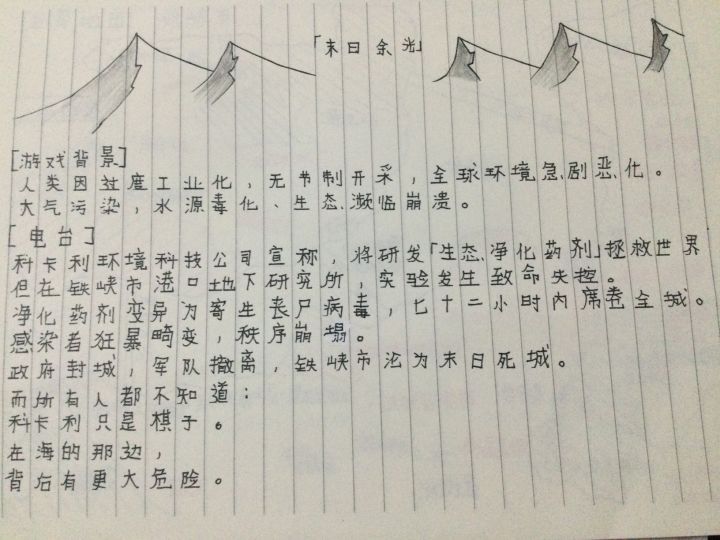 「末日余光」
[游戏背景]
人类因过度工业化，无节制开采，全球环境急剧恶化。
大气污染，水源毒化、生态濒临崩溃。
[电台]
科卡利环境科技公司宣称，将研发「生态净化药剂」拯救世界
但在铁峡市港口地下研究所，实验发生致命失控。
净化药剂变异为寄生丧尸病毒，七十二小时内席卷全城。
感染者狂暴畸变，秩序崩塌。
政府封城，军队撤离，铁峡市沦为末日死城。
而所有人都不知道：
科卡利只是棋子。
在海的那边，
背后有更大危险。